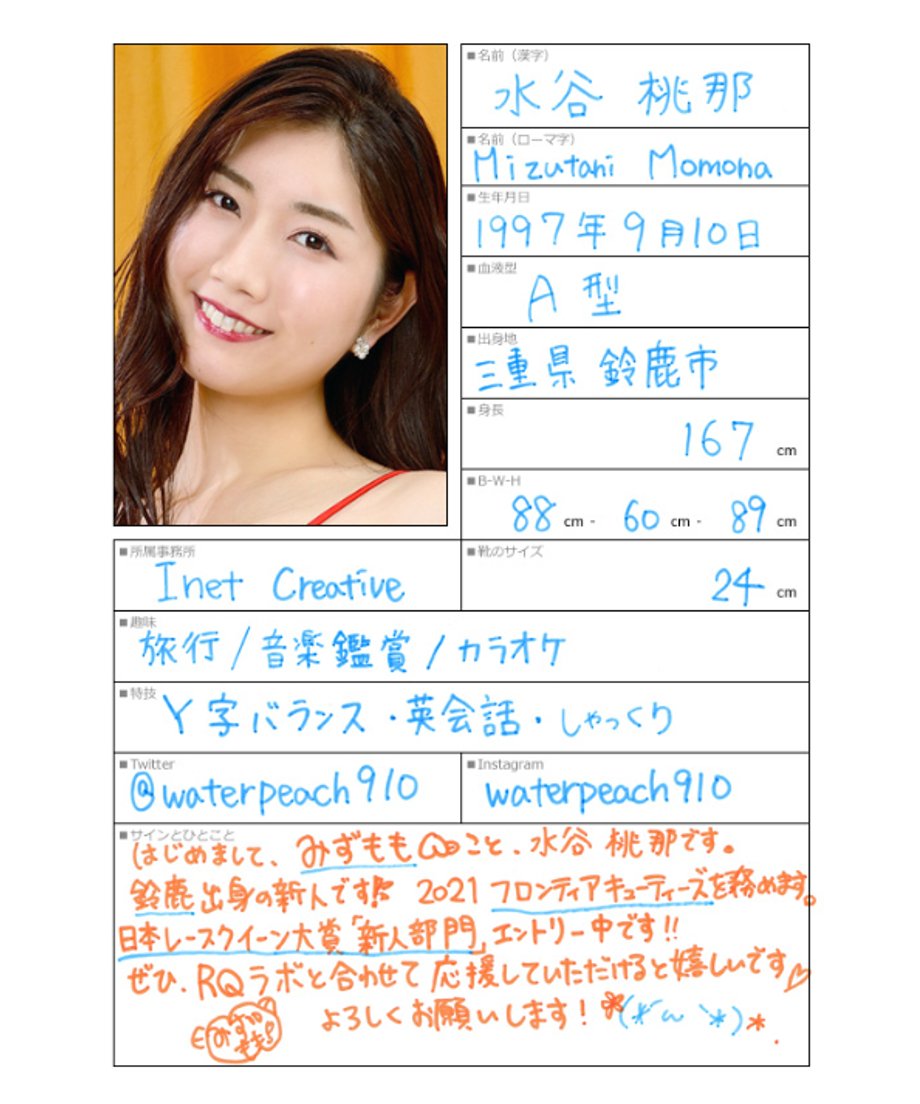 ■名前（漢字）
水谷 桃那
■名前（ローマ字）
Mizutani Momona
■生年月日
1997年9月10日
■血液型
A型
■出身地
三重県 鈴鹿市
■身長
167 cm
■B-W-H
88 cm - 60 cm - 89 cm
■所属事務所
Inet Creative
■靴のサイズ
24 cm
■趣味
旅行/音楽鑑賞/カラオケ
■特技
Y字バランス・英会話・しゃっくり
■Twitter
@waterpeach910
■Instagram
waterpeach910
■サインとひとこと
はじめまして、みずももこと、水谷 桃那です。
鈴鹿出身の新人です!! 2021 フロンティアキューティーズを務めます。
日本レースクイーン大賞「新人部門」エントリー中です!!
ぜひ、RQラボと合わせて応援していただけると嬉しいです♡
よろしくお願いします!